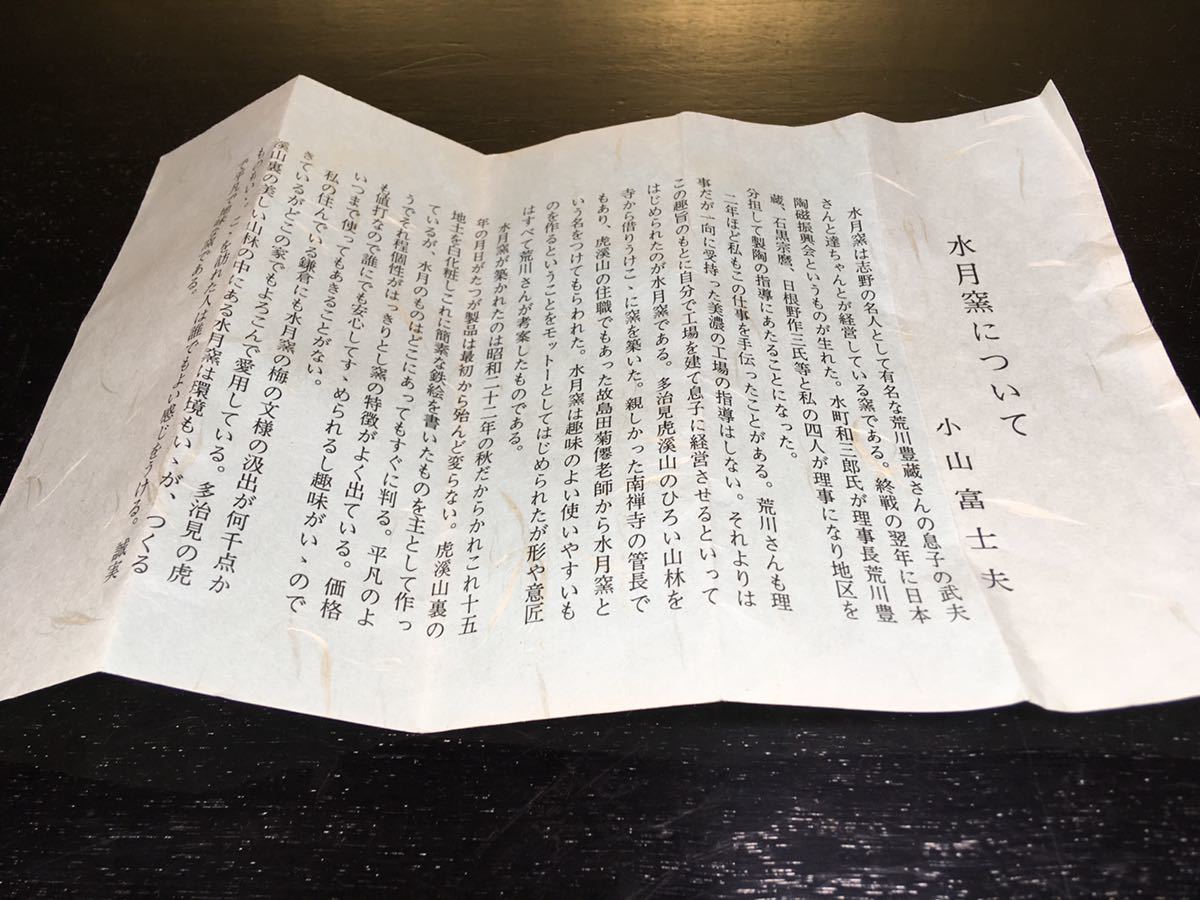 水月窯について
小山富士夫
水月窯は志野の名人として有名な荒川豊蔵さんの息子の武夫
さんと達ちゃんとが経営している窯である。終戦の翌年に日本
陶磁振興会というものが生れた。水町和三郎氏が理事長荒川豊
蔵、石黒宗麿、日根野作三氏等と私の四人が理事になり地区を
分担して製陶の指導にあたることになった。
二年ほど私もこの仕事を手伝ったことがある。荒川さんも理
事だが一向に受持った美濃の工場の指導はしない。それよりは
この趣旨のもとに自分で工場を建て息子に経営させるといって
はじめられたのが水月窯である。多治見虎溪山のひろい山林を
寺から借りうけこゝに窯を築いた。親しかった南禅寺の管長で
もあり、虎溪山の住職でもあった故島田菊僊老師から水月窯と
いう名をつけてもらわれた。水月窯は趣味のよい使いやすいも
のを作るということをモットーとしてはじめられたが形や意匠
はすべて荒川さんが考案したものである。
水月窯が築かれたのは昭和二十二年の秋だからかれこれ十五
年の月日がたつが製品は最初から殆んど変らない。虎溪山裏の
地土を白化粧しこれに簡素な鉄絵を書いたものを主として作っ
ているが、水月のものはどこにあってもすぐに判る。平凡のよ
うでそれ程個性がはっきりとし窯の特徴がよく出ている。価格
も値打なので誰にでも安心してすゝめられるし趣味がいゝので
いつまで使ってもあきることがない。
私の住んでいる鎌倉にも水月窯の梅の文様の汲出が何千点か
きているがどこの家でもよろこんで愛用している。多治見の虎
溪山裏の美しい山林の中にある水月窯は環境もいゝが、つくる
ものもいゝ。こゝを訪れた人は誰でもよい感じをうける。誠実
で平凡で健全な窯である。